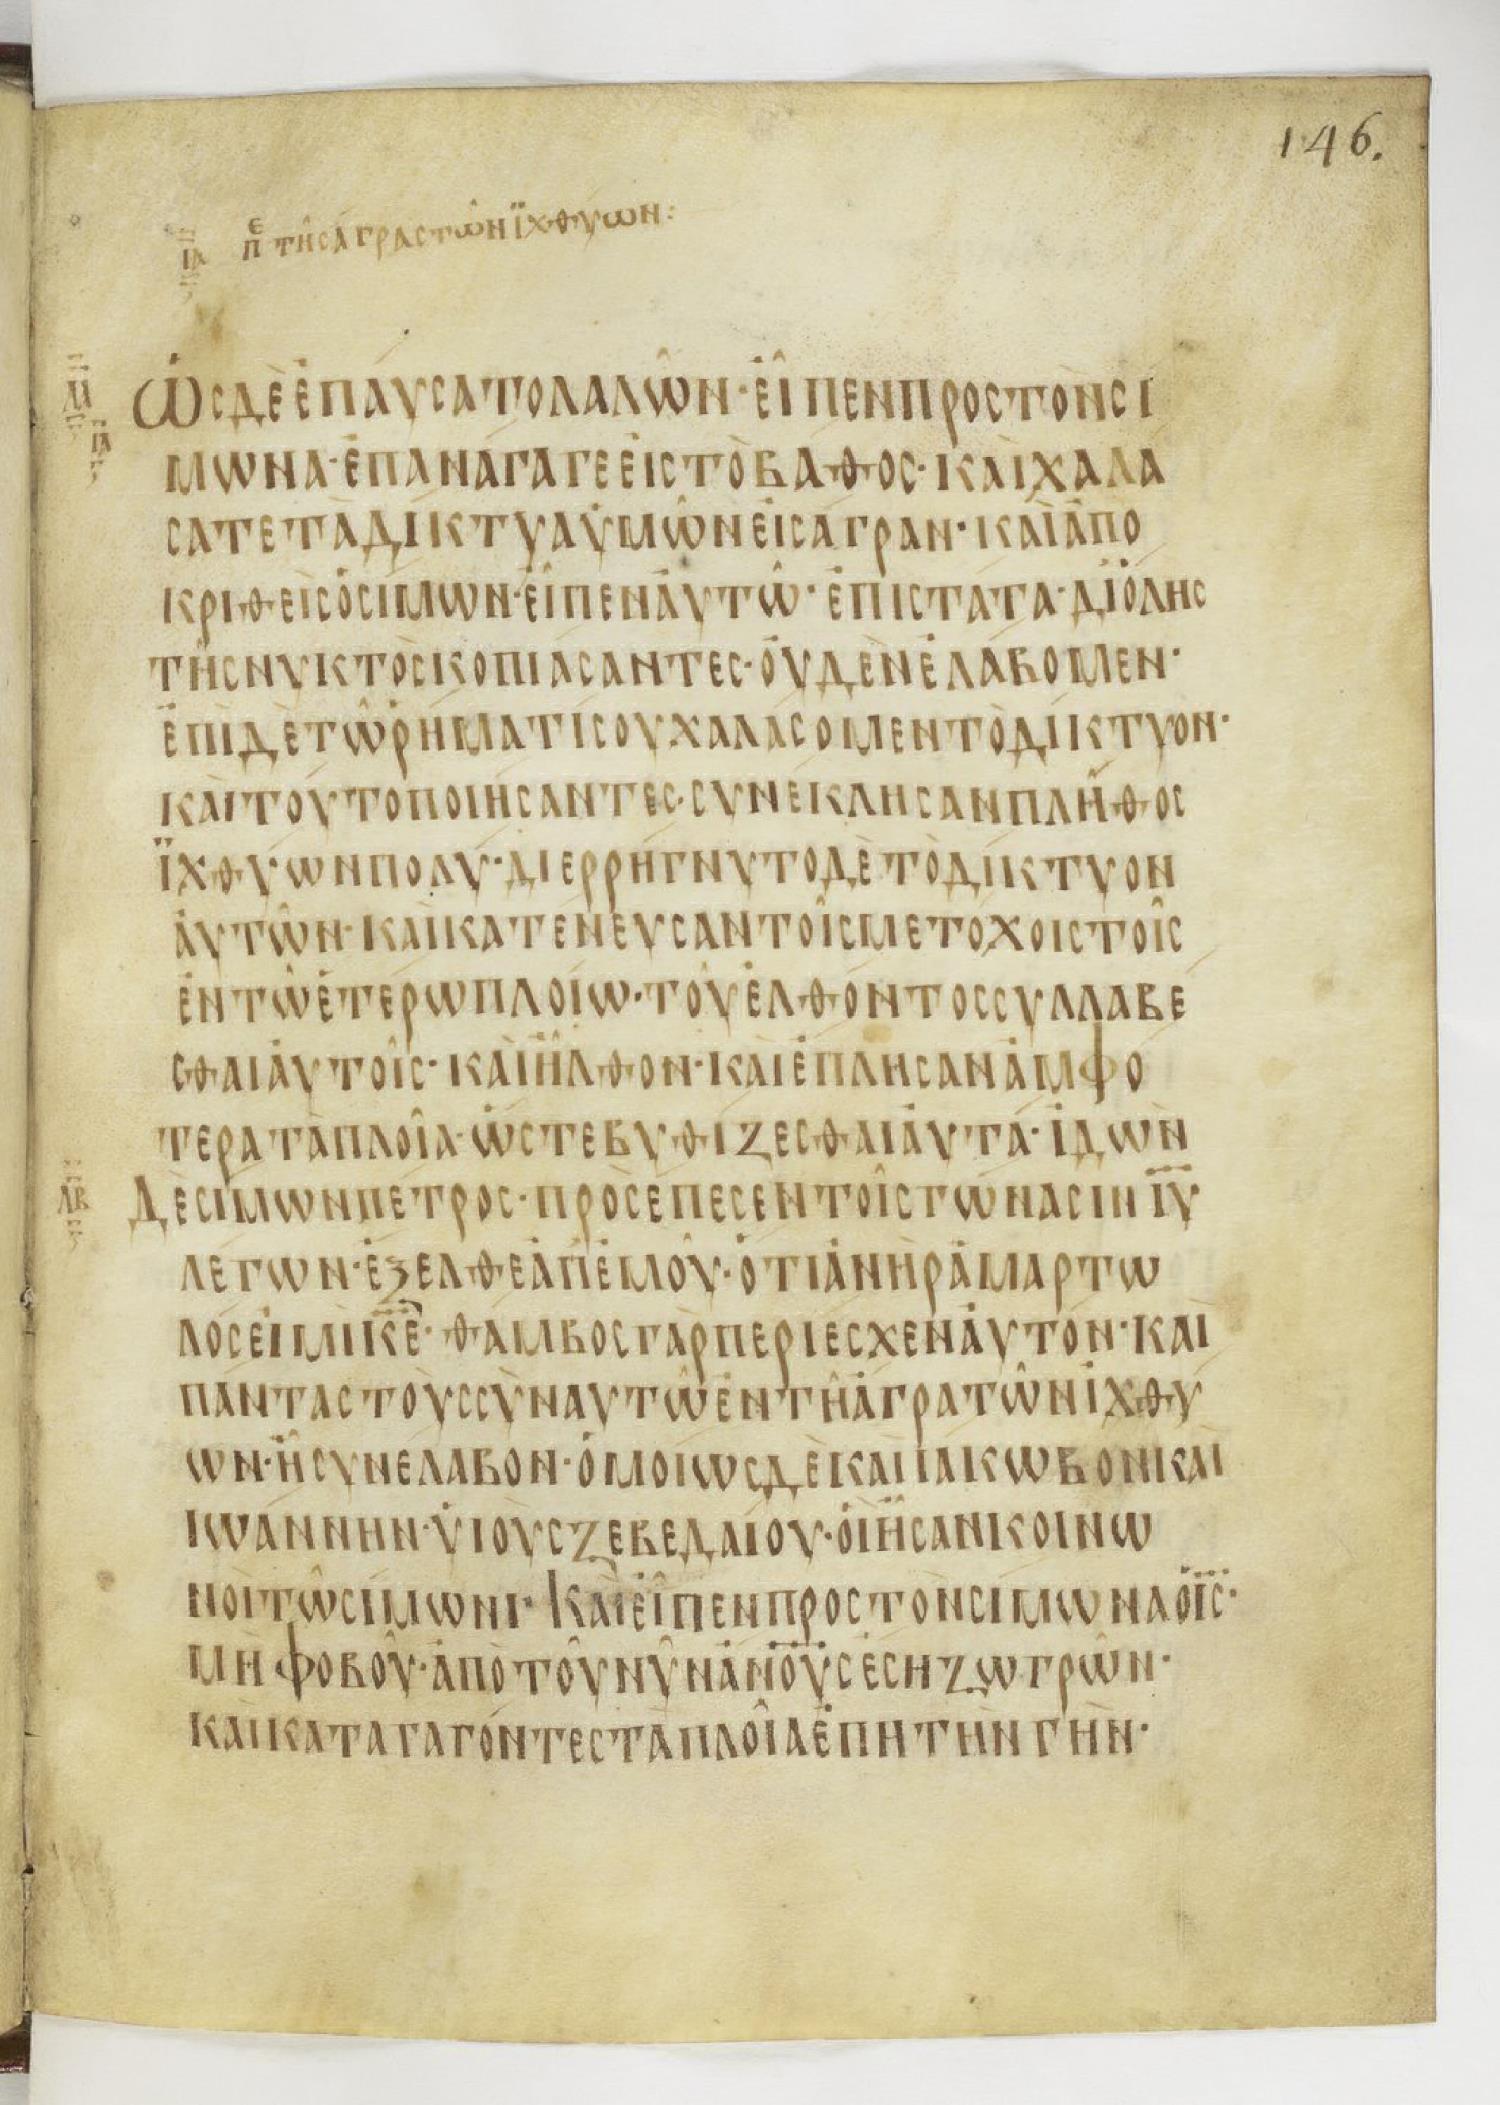 146.
ΙΑ ΠΕ ΤΗ͂Σ ἌΓΡΑΣ ΤΩ͂Ν ΪΧΘΥΩΝ:
ΛΑ
ΙΑ
ὩϹΔῈἘΠΑΥϹΑΤΟΛΑΛΩ͂Ν·ἘΙ͂ΠΕΝΠΡΟϹΤῸΝϹΙ
ΜΩΝΑ·ἘΠΑΝΑΓΑΓΕἘΙϹΤῸΒΑΘΟϹ·ΚΑῚΧΑΛΑ
ϹΑΤΕΤᾺΔΙΚΤΥΑὙΜΩ͂ΝἘΙϹΑΓΡΑΝ·ΚΑῚἈΠΟ
ΚΡΙΘΕῚϹὉϹΙΜΩΝ·ἘΙ͂ΠΕΝἈΥΤΩ͂·ἘΠΙϹΤΑΤΑ·ΔΙὉΛΗϹ
ΤΗ͂ϹΝΥΚΤῸϹΚΟΠΙΑϹΑΝΤΕϹ·ὈΥΔῈΝἘΛΑΒΟΜΕΝ·
ἘΠῚΔῈΤΩ͂ῬΗΜΑΤΙϹΟΥΧΑΛΑϹΟΜΕΝΤῸΔΙΚΤΥΟΝ·
ΚΑῚΤΟΥΤΟΠΟΙΗϹΑΝΤΕϹ·ϹΥΝΕΚΛΗϹΑΝΠΛΗ͂ΘΟϹ
ΪΧΘΥΩΝΠΟΛΥ·ΔΙΕΡΡΗΓΝΥΤΟΔῈΤῸΔΙΚΤΥΟΝ
ἈΥΤΩ͂Ν·ΚΑῚΚΑΤΕΝΕΥϹΑΝΤΟΙ͂ϹΜΕΤΟΧΟΙϹΤΟΙ͂Ϲ
ἘΝΤΩ͂ἙΤΕΡΩΠΛΟΙΩ·ΤΟΥ͂ἘΛΘΟΝΤΟϹϹΥΛΛΑΒΕ
ϹΘΑΙἈΥΤΟΙ͂Ϲ·ΚΑῚἮΛΘΟΝ·ΚΑῚἘΠΛΗϹΑΝἈΜΦΟ
ΤΕΡΑΤᾺΠΛΟΙ͂Α·ὩϹΤΕΒΥΘΙΖΕϹΘΑΙἈΥΤΑ·ἸΔΩΝ
ΛΒ
ΔῈϹΙΜΩΝΠΕΤΡΟϹ·ΠΡΟϹΕΠΕϹΕΝΤΟΙ͂ϹΓΩΝΑϹΙΝΙΥ
ΛΕΓΩΝ·ἘΞΕΛΘΕἈΠἘΜΟΥ͂·ὉΤΙἈΝῊΡἉΜΑΡΤΩ
ΛΟϹἘΙΜῚΚΕ·ΘΑΜΒΟϹΓᾺΡΠΕΡΙΕϹΧΕΝἈΥΤΟΝ·ΚΑῚ
ΠΑΝΤΑϹΤΟῪϹϹῪΝΑΥΤΩ͂ἘΝΤΗ͂ἈΓΡΑΤΩ͂ΝἸΧΘΥ
ΩΝ·ἯϹΥΝΕΛΑΒΟΝ·ὉΜΟΙΩϹΔῈΚΑῚΙΑΚΩΒΟΝΚΑῚ
ΙΩΑΝΝΗΝ·ὙΙΟΥϹΖΕΒΕΔΑΙΟΥ·ὉΙἮϹΑΝΚΟΙΝΩ
ΝΟῚΤΩ͂ϹΙΜΩΝΙ·ΚΑῚἘΙ͂ΠΕΝΠΡΟϹΤῸΝϹΙΜΩΝΑὉΙϹ·
ΜῊΦΟΒΟΥ͂·ἈΠῸΤΟΥ͂ΝΥ͂ΝἈΝΟΥϹἘϹΗΖΩΓΡΩ͂Ν·
ΚΑῚΚΑΤΑΓΑΓΟΝΤΕϹΤᾺΠΛΟΙ͂ΑἘΠΗΤῊΝΓΗΝ·